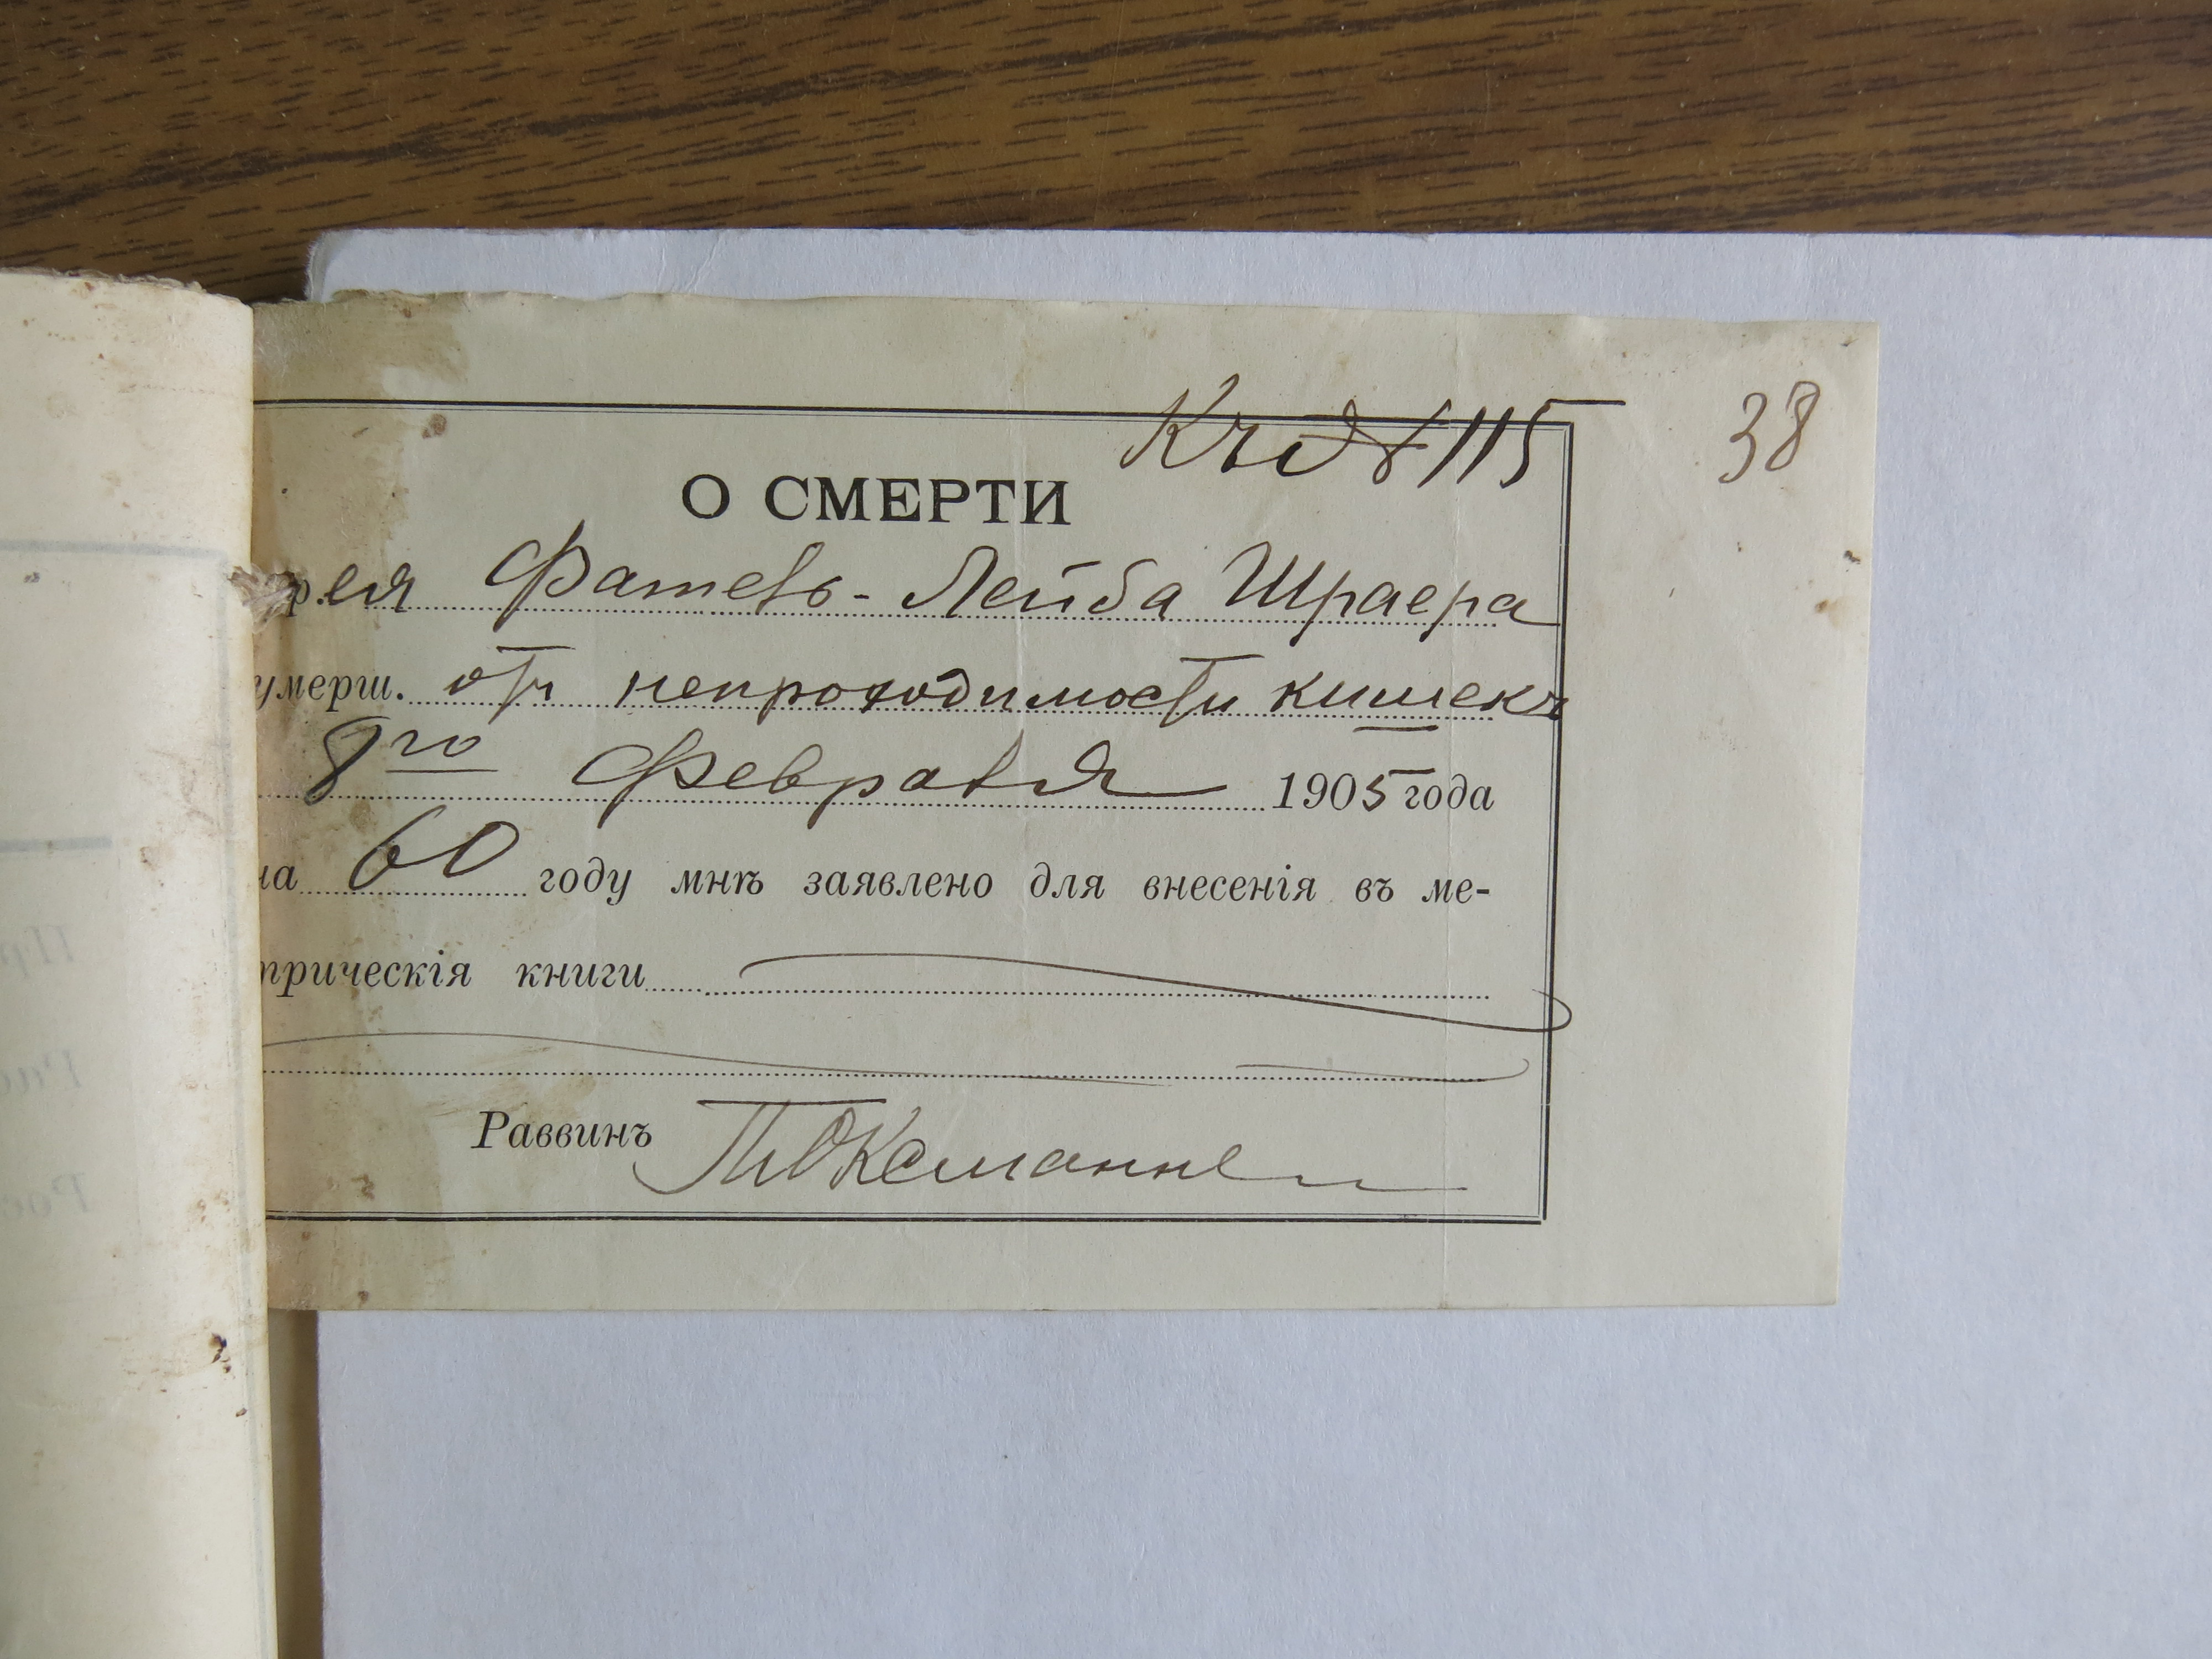 Къ № 115
38
О СМЕРТИ
р.ея Фатель-Лейба Шраера
умерш. отъ непроходимости кишекъ
8го Февраля 1905 года
на 60 году мнѣ заявлено для внесенія въ ме-
трическія книги
Раввинъ